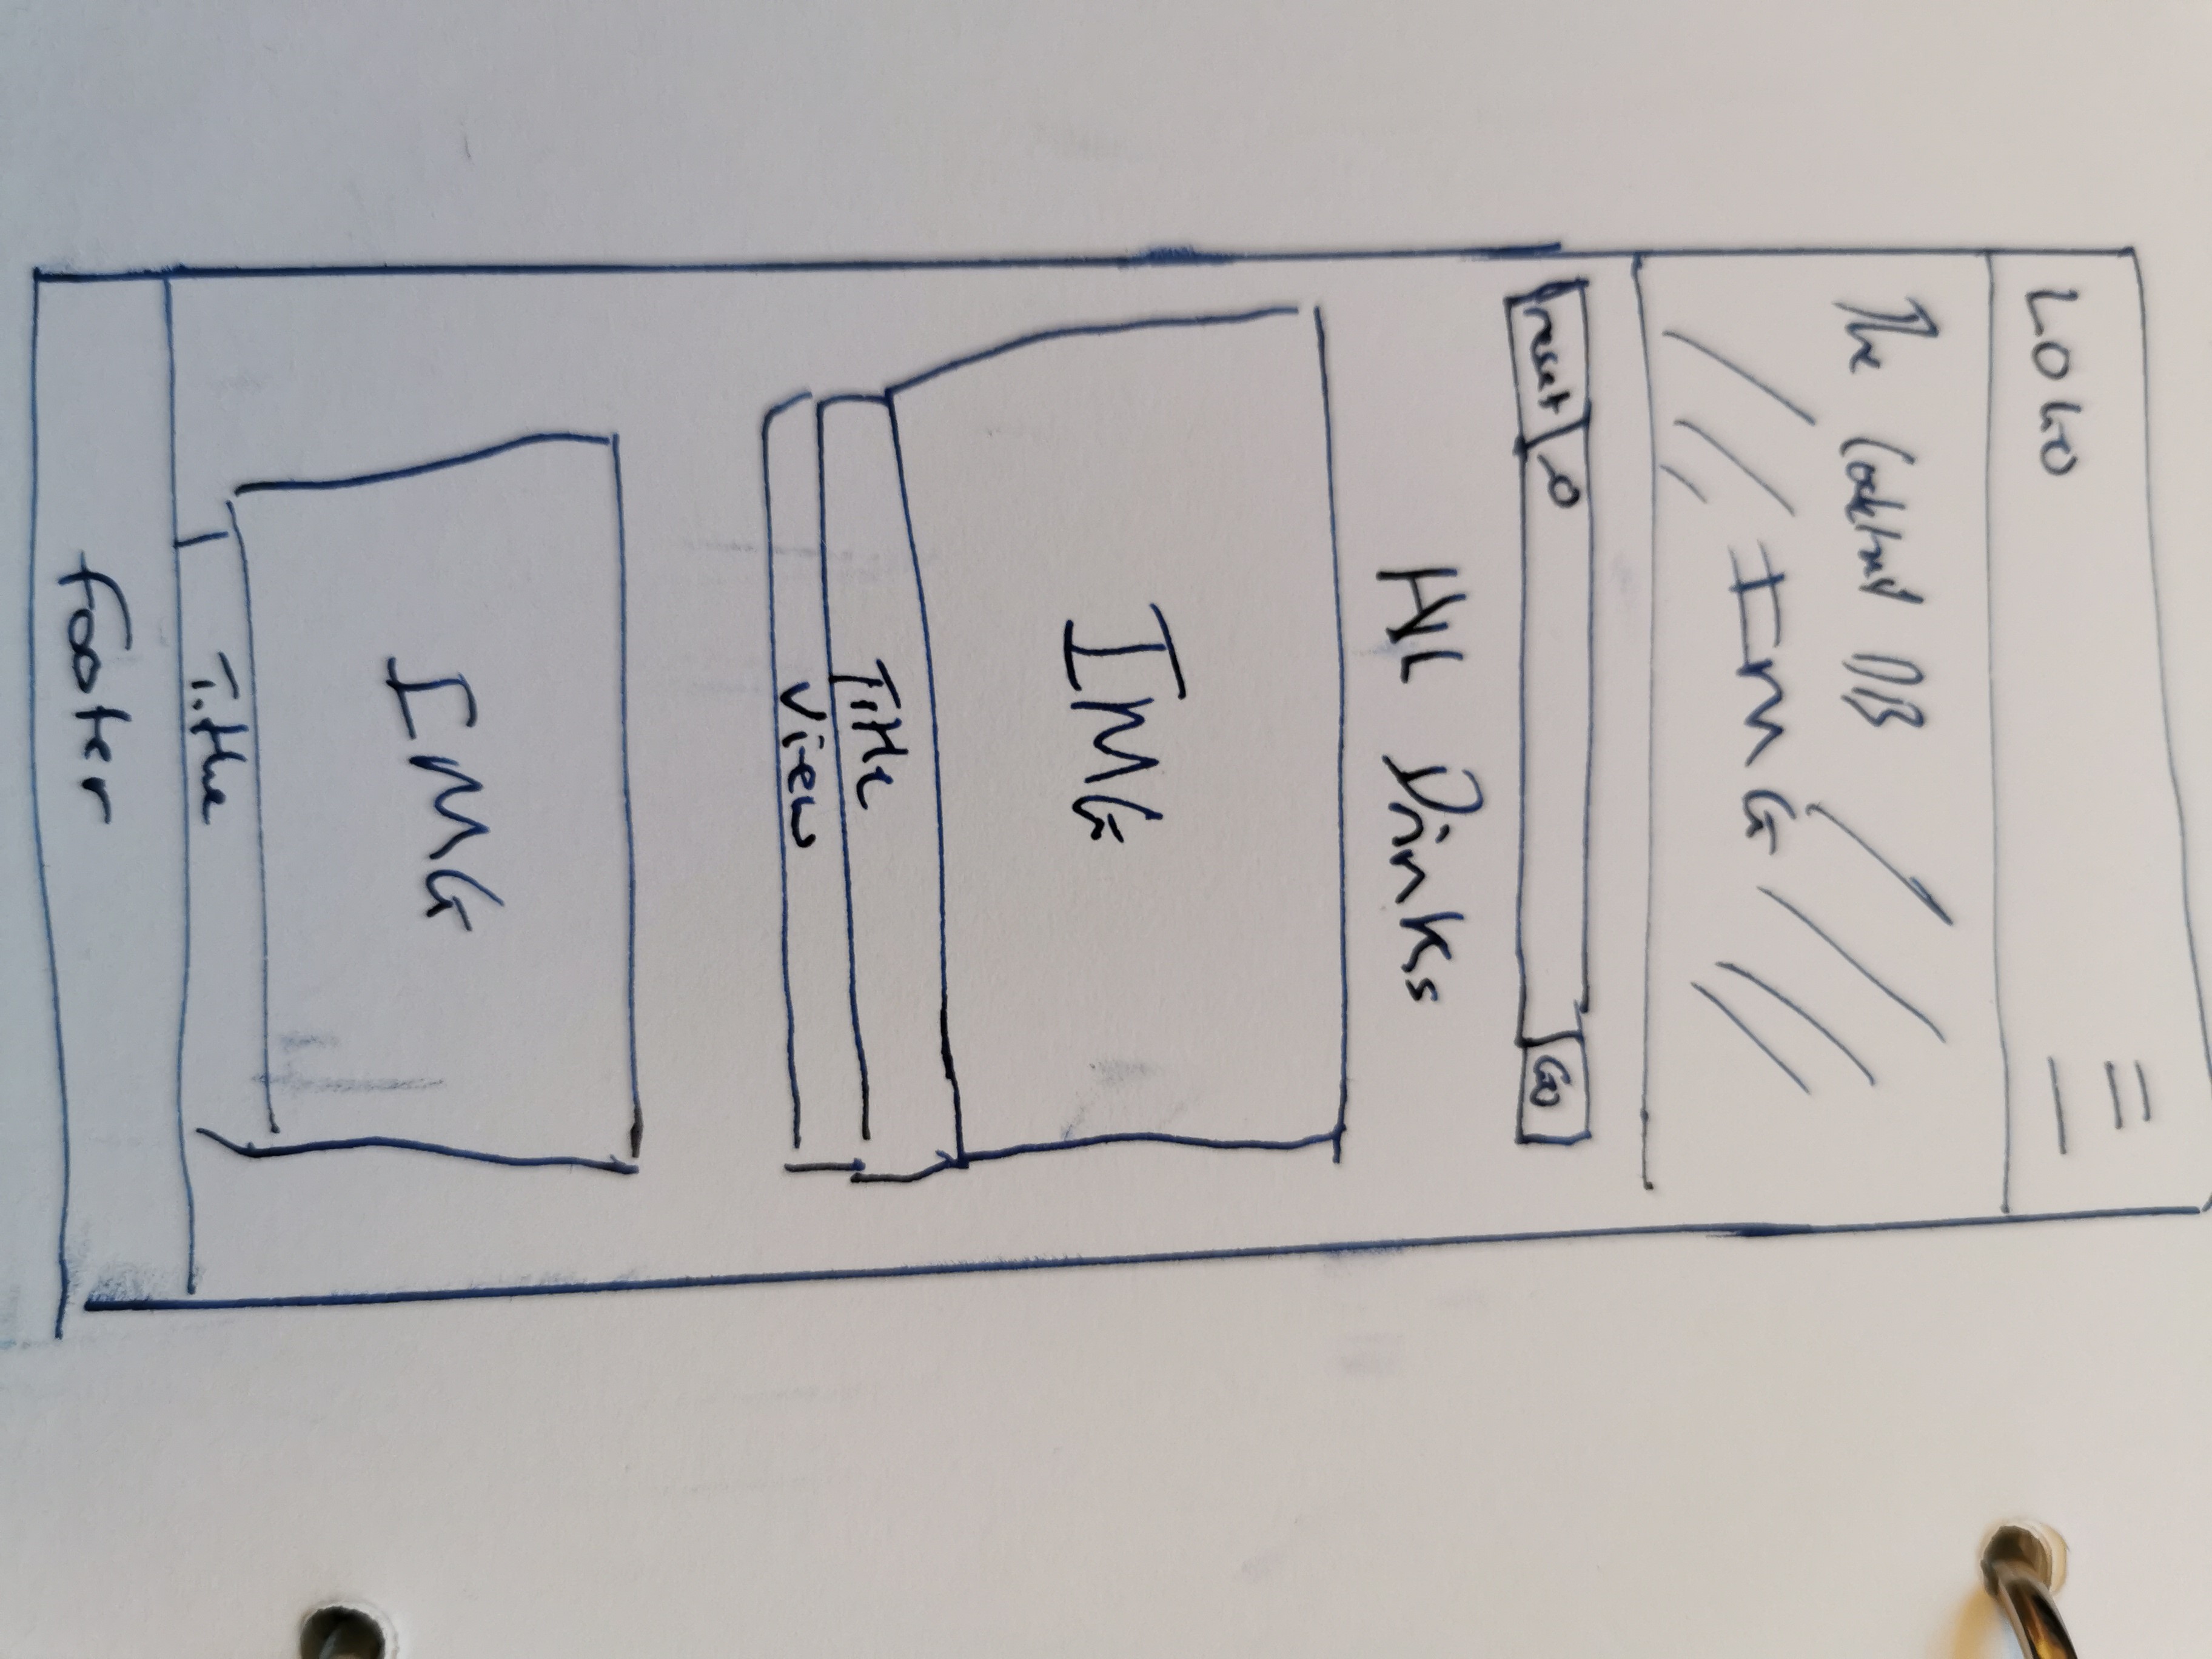 LOGO
The Cocktail DB
IMG
reset
Go
All Drinks
IMG
Title
View
IMG
Title
footer